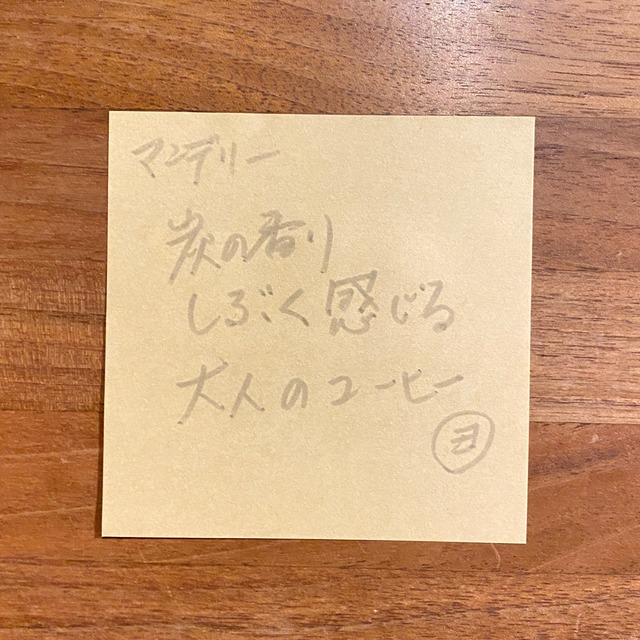 マンデリー
炭の香り
しぶく感じる
大人のコーヒー
ヨ